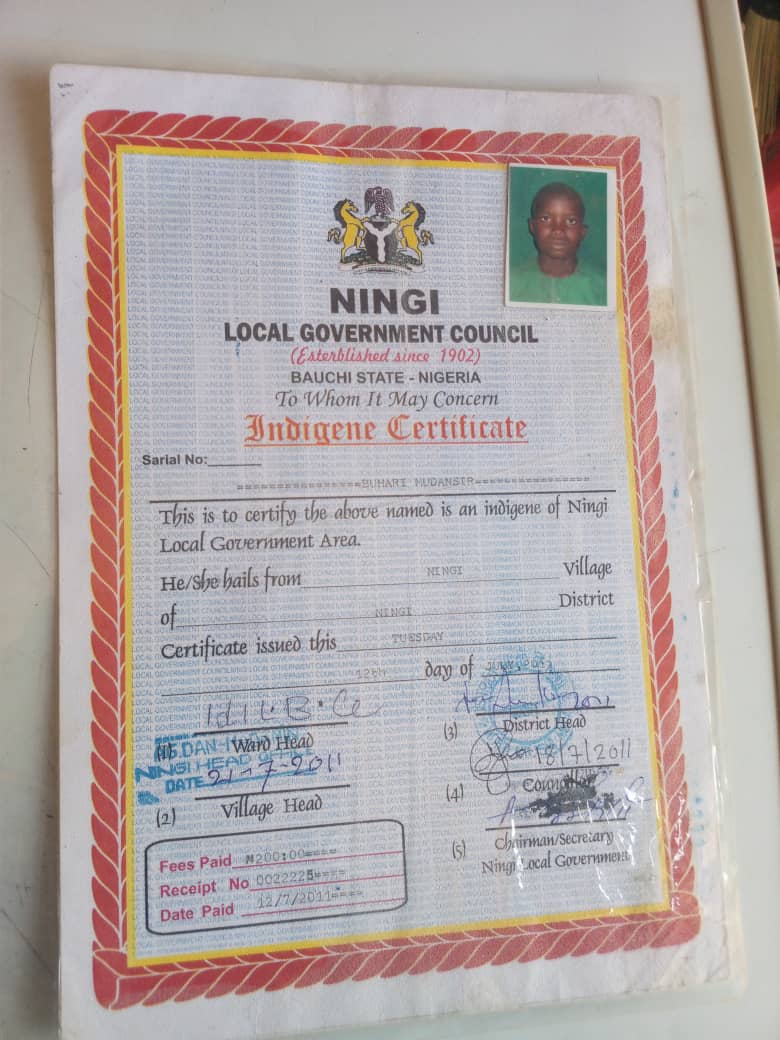 NINGI
LOCAL GOVERNMENT COUNCIL
(Esterblished since 1902)
BAUCHI STATE - NIGERIA
To Whom It May Concern
Indigene Certificate
Sarial No:______
=================BUHARI MUDANSIR================
This is to certify the above named is an indigene of Ningi
Local Government Area.
He/She hails from NINGI Village
of NINGI District
Certificate issued this TUESDAY
12th day of JULY,
(1) Ward Head
NINGI HEAD
DATE 21-7-2011
(2) Village Head
(3) District Head
18/7/2011
(4)
(5) Chairman/Secretary
Ningi Local Government
Fees Paid ₦200:00====
Receipt No 0022225====
Date Paid 12/7/2011====